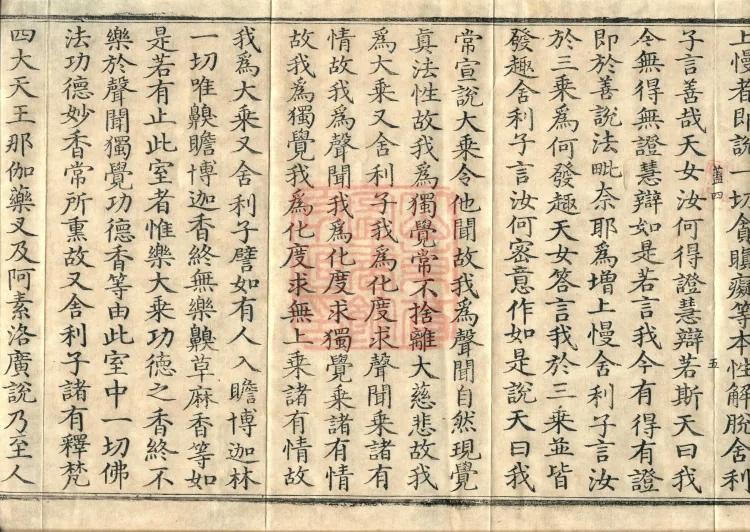 上慢者即說一切貪瞋癡等本性解脫舍利
子言善哉天女汝何得證慧辯若斯天曰我
今無得無證慧辯如是若言我今有得有證
即於善說法毗奈耶為增上慢舍利子言汝
於三乘為何發趣天女答言我於三乘並皆
發趣舍利子言汝何密意作如是說天曰我
常宣說大乘令他聞故我為聲聞自然現覺
真法性故我為獨覺常不捨離大慈悲故我
為大乘又舍利子我為化度求聲聞乘諸有
情故我為聲聞我為化度求獨覺乘諸有情
故我為獨覺我為化度求無上乘諸有情故
我為大乘又舍利子譬如有人入瞻博迦林
一切唯齅瞻博迦香終無樂齅草麻香等如
是若有止此室者惟樂大乘功德之香終不
樂於聲聞獨覺功德香等由此室中一切佛
法功德妙香常所熏故又舍利子諸有釋梵
四大天王那伽藥叉及阿素洛廣說乃至人
五